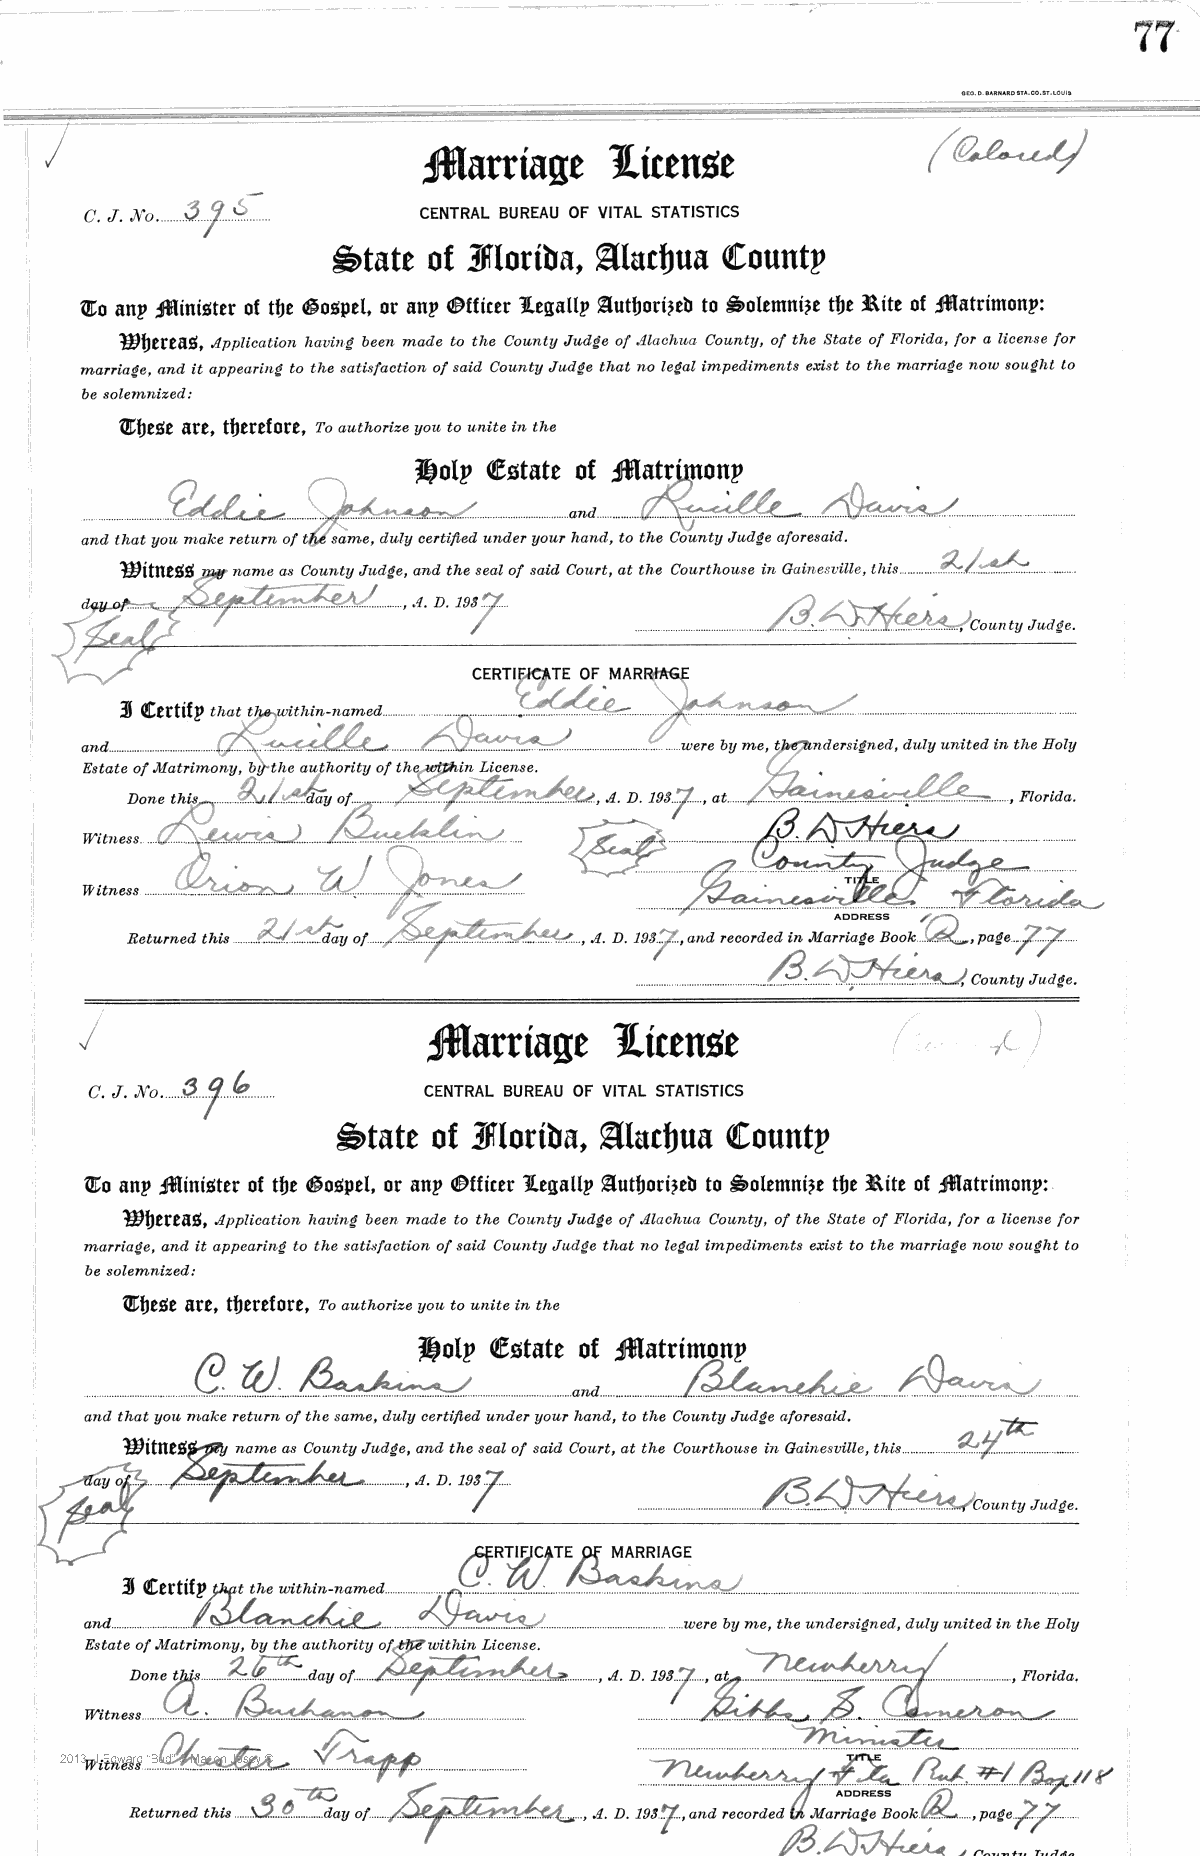 77
GEO. D. BARNARD STA. CO. ST. LOUIS
(Colored)
Marriage License
C. J. No. 395
CENTRAL BUREAU OF VITAL STATISTICS
State of Florida, Alachua County
To any Minister of the Gospel, or any Officer Legally Authorized to Solemnize the Rite of Matrimony:
Whereas, Application having been made to the County Judge of Alachua County, of the State of Florida, for a license for
marriage, and it appearing to the satisfaction of said County Judge that no legal impediments exist to the marriage now sought to
be solemnized:
These are, therefore, To authorize you to unite in the
Holy Estate of Matrimony
Eddie Johnson and Lucille Davis
and that you make return of the same, duly certified under your hand, to the County Judge aforesaid.
Witness my name as County Judge, and the seal of said Court, at the Courthouse in Gainesville, this 21st
day of September, A. D. 1937
Seal
B. D. Hiers, County Judge.
CERTIFICATE OF MARRIAGE
I Certify that the within-named Eddie Johnson
and Lucille Davis were by me, the undersigned, duly united in the Holy
Estate of Matrimony, by the authority of the within License.
Done this 21st day of September, A. D. 1937, at Gainesville, Florida.
Witness Lewis Bucklin Seal B. D. Hiers
County Judge
TITLE
Witness Orion W Jones Gainesville, Florida
ADDRESS
Returned this 21st day of September, A. D. 1937, and recorded in Marriage Book R, page 77
B. D. Hiers, County Judge.
Marriage License
C. J. No. 396
CENTRAL BUREAU OF VITAL STATISTICS
State of Florida, Alachua County
To any Minister of the Gospel, or any Officer Legally Authorized to Solemnize the Rite of Matrimony:
Whereas, Application having been made to the County Judge of Alachua County, of the State of Florida, for a license for
marriage, and it appearing to the satisfaction of said County Judge that no legal impediments exist to the marriage now sought to
be solemnized:
These are, therefore, To authorize you to unite in the
Holy Estate of Matrimony
C. W. Baskins and Blanchie Davis
and that you make return of the same, duly certified under your hand, to the County Judge aforesaid.
Witness my name as County Judge, and the seal of said Court, at the Courthouse in Gainesville, this 24th
day of September, A. D. 1937
Seal
B. D. Hiers, County Judge.
CERTIFICATE OF MARRIAGE
I Certify that the within-named C. W. Baskins
and Blanchie Davis were by me, the undersigned, duly united in the Holy
Estate of Matrimony, by the authority of the within License.
Done this 26th day of September, A. D. 1937, at Newberry, Florida.
Witness A. Buchanon Gibbs S. Cameron
Minister
2013 J Edward "Bud" Mason Josey ©
TITLE
Witness Chester Trapp Newberry Fla Rut. #1 Box 118
ADDRESS
Returned this 30th day of September, A. D. 1937, and recorded in Marriage Book R, page 77
B. D. Hiers, County Judge.